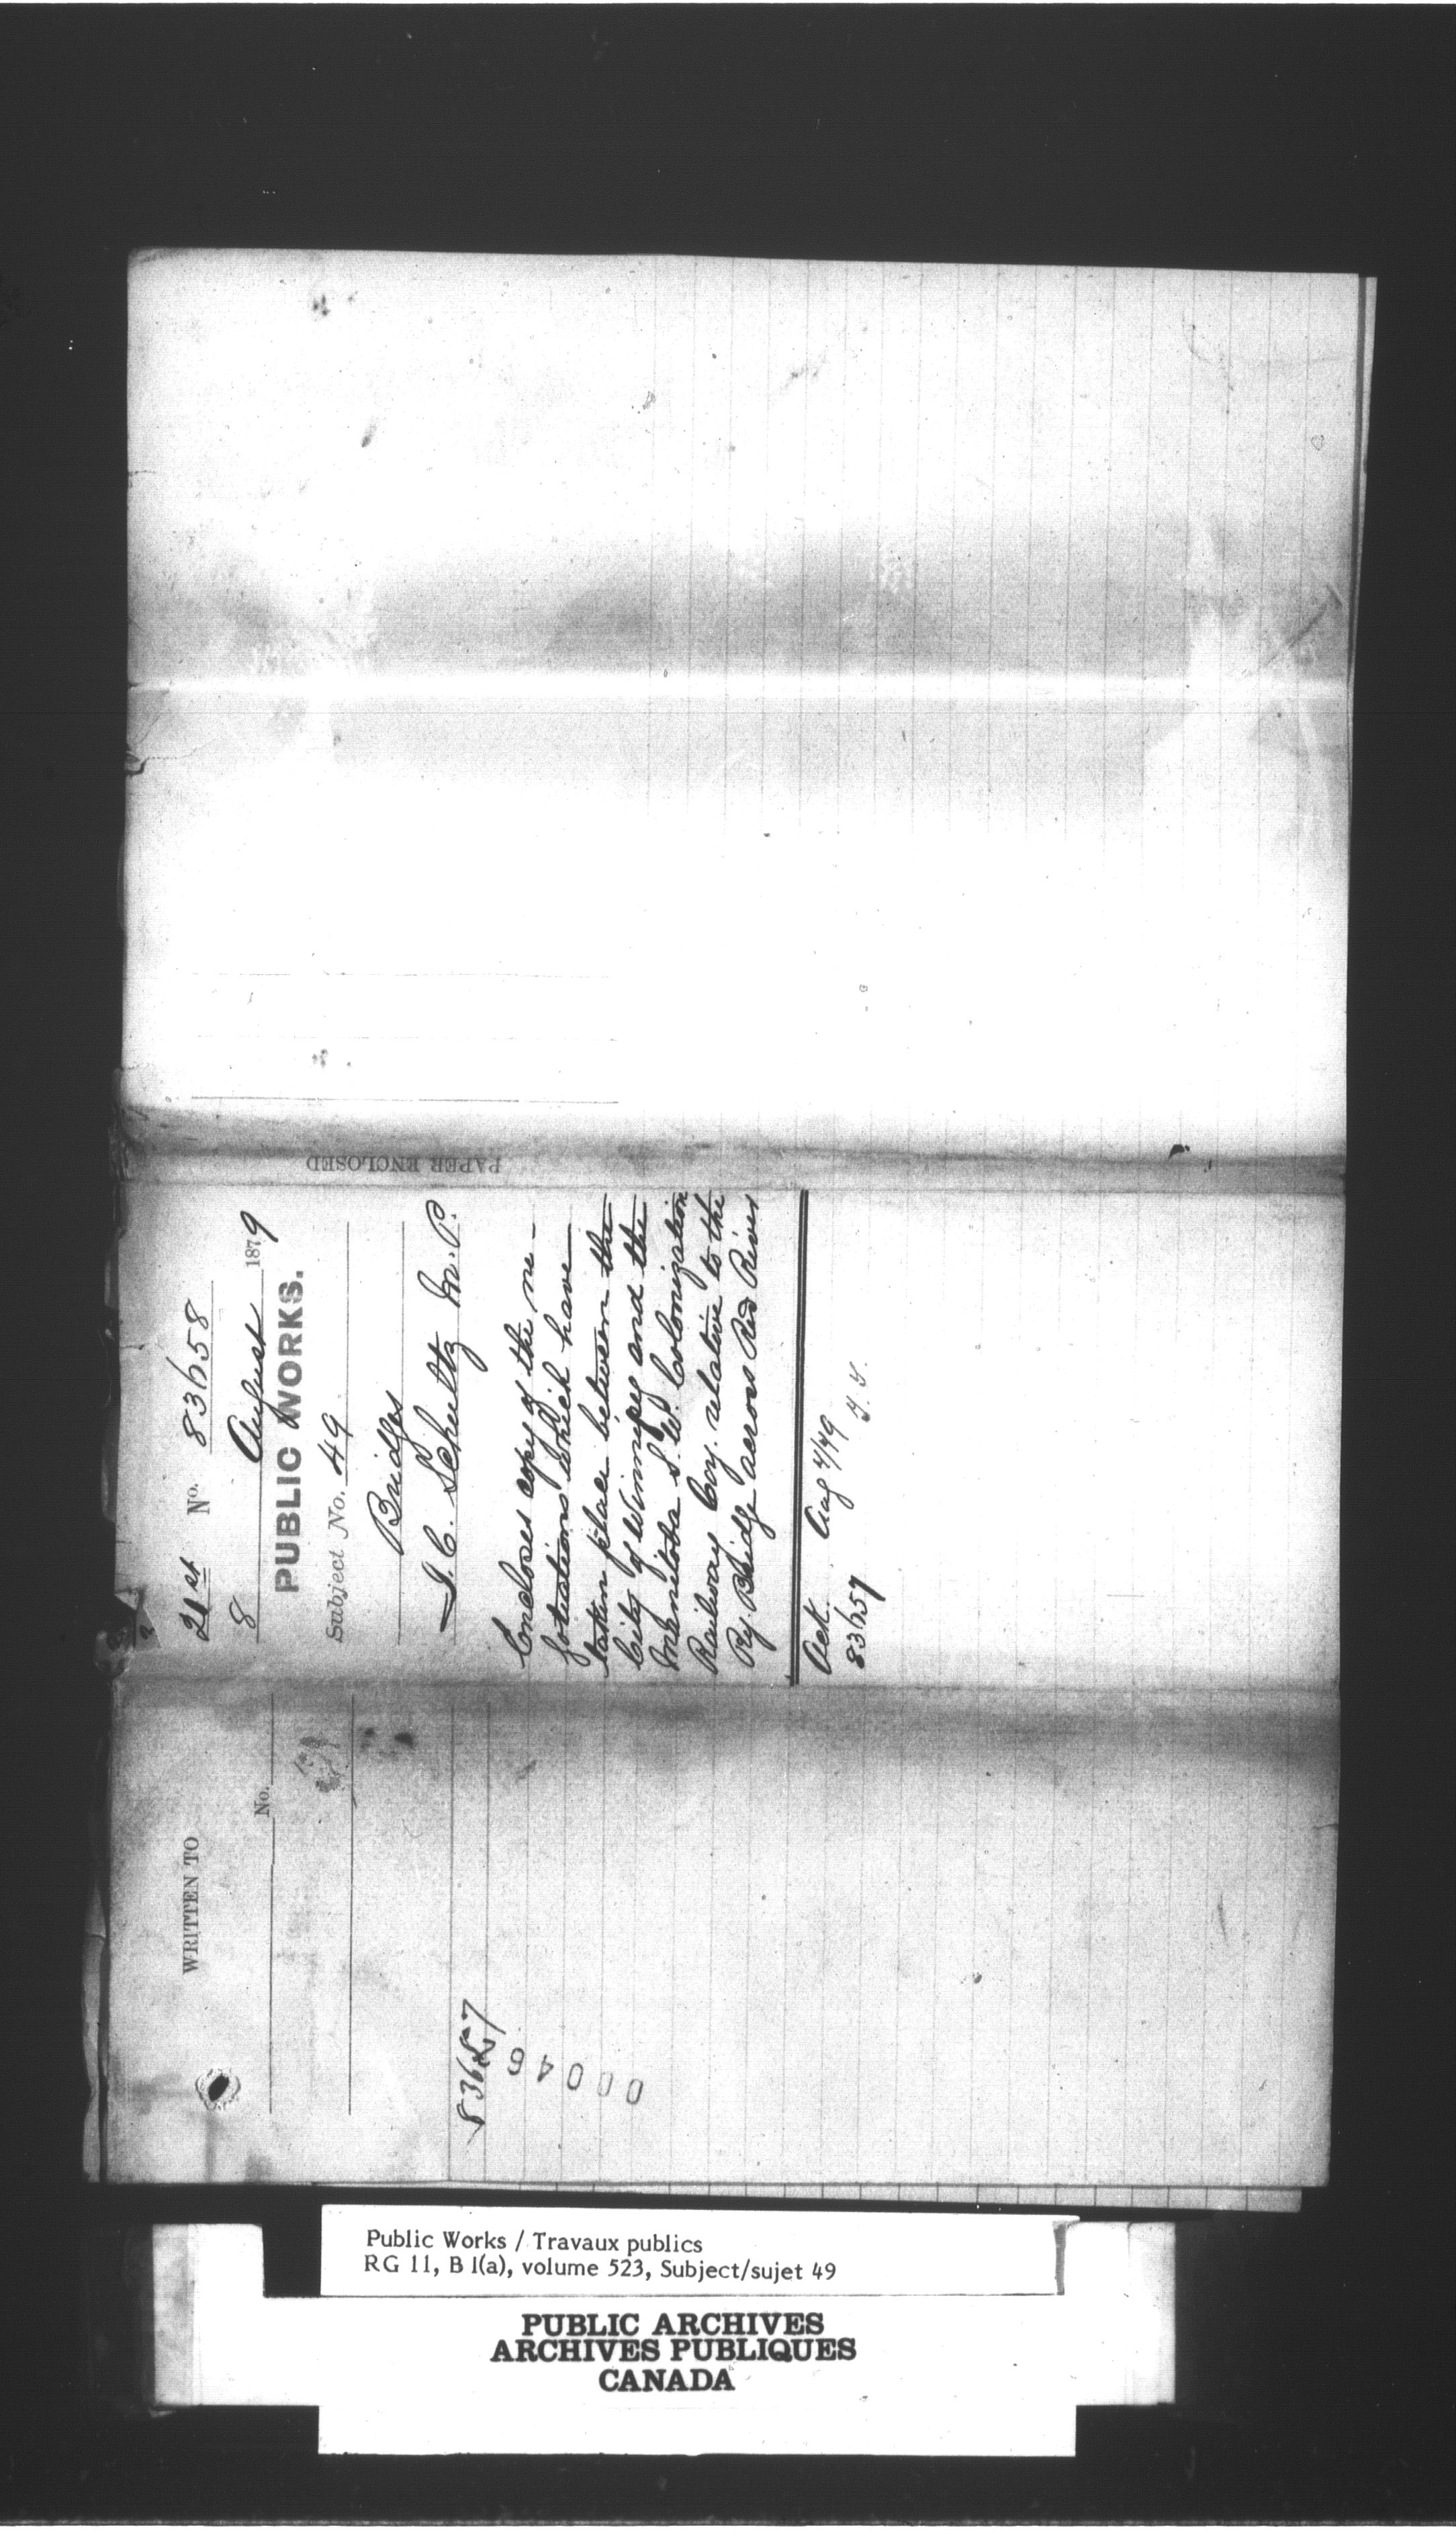 21st No. 83658
8 August 1879
PUBLIC WORKS.
Subject No. 49
Bridges
J. C. Schultz M. P.
Encloses copy of the ne-
gotiations which have
taken place between the
City of Winnipeg and the
Manitoba S. W. Colonization
Railway Coy. relative to the
Ry. Bridge across Red River
Ack. Aug
83657
PAPER ENCLOSED
WRITTEN TO
No.
83657
00046
Public Works / Travaux publics
RG 11, B 1(a), volume 523, Subject/sujet 49
PUBLIC ARCHIVES
ARCHIVES PUBLIQUES
CANADA